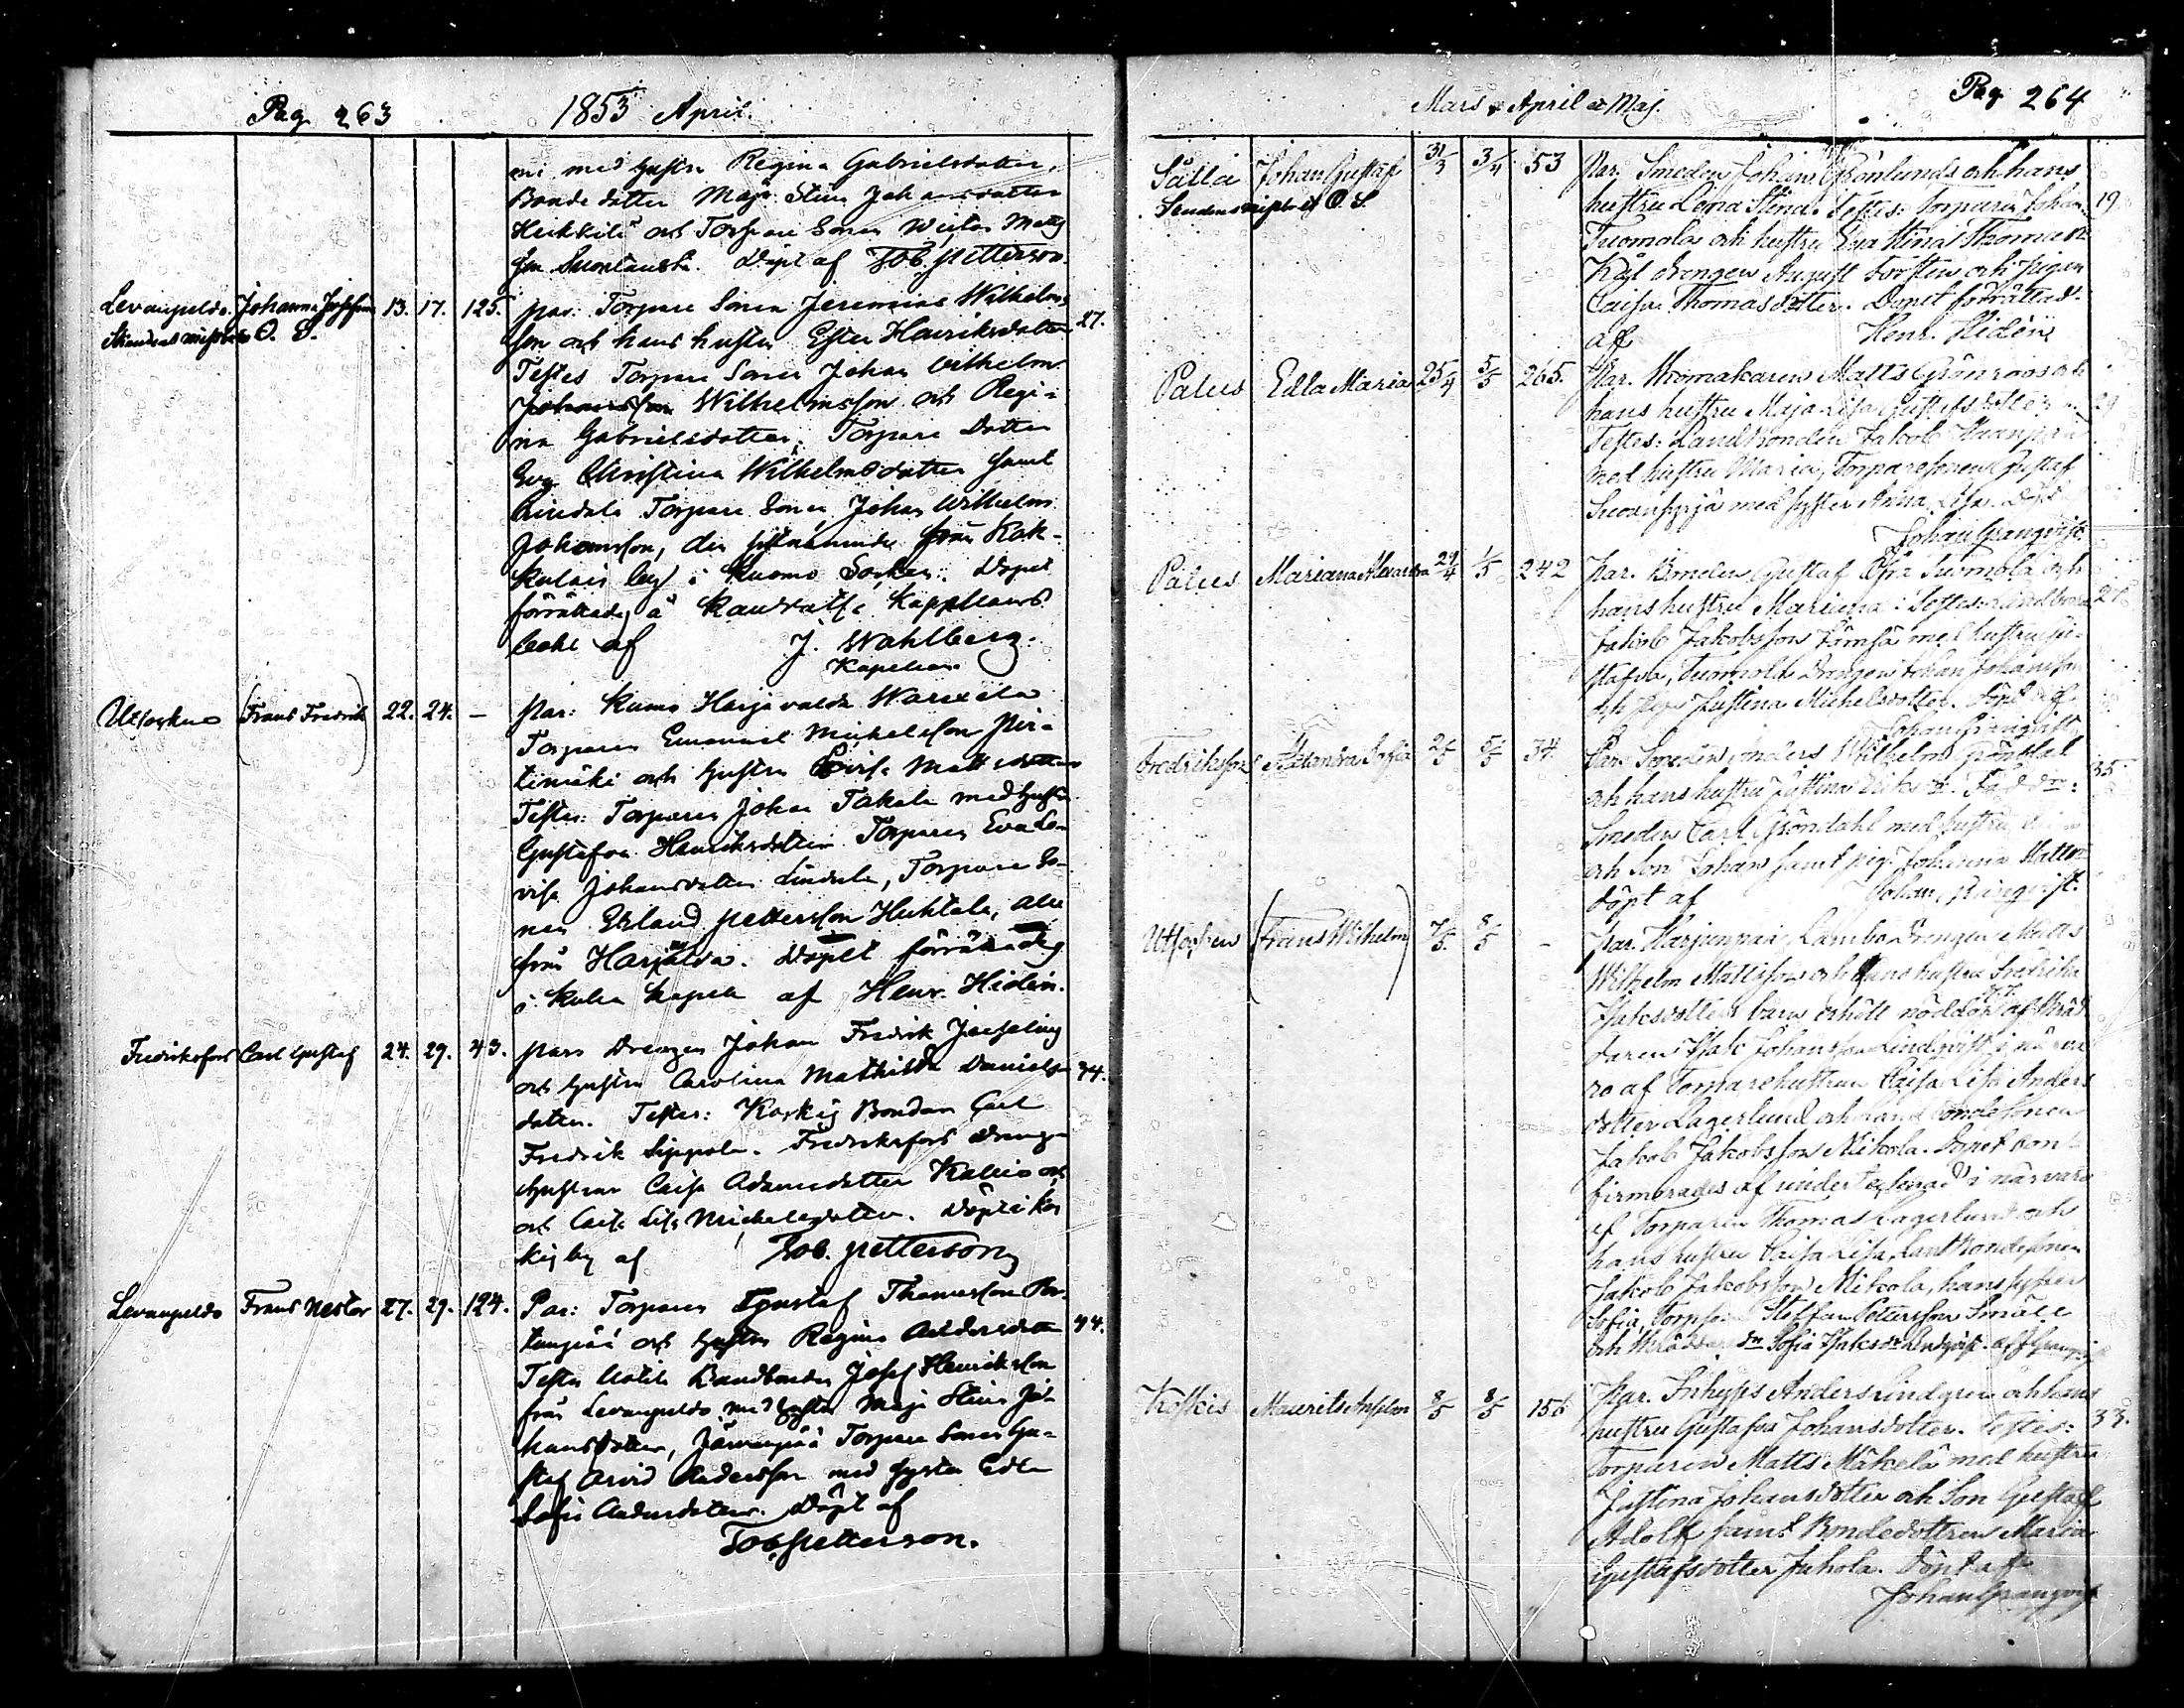 Pag 263 1853 April.
mi med hustru Regina Gabrielsdotter,
Bonde dotter Maja Stina Johansdotter
Heikkilä och Torpare Sonen
Döpt af Tob. Petterson.
Levanpeldo Johanna Josefina 13. 17. 125. par: Torpare Sonen Jeremias Wilhelms
O. S. son och hans hustru Ester Henriksdotter 27.
Testes Torpare Sonen Johan Wilhelm
Johansson Wilhelmsson och Regi-
na Gabrielsdotter, Torpare Dotter
Eva Christina Wilhelmsdotter samt
Torpare Sonen Johan Wilhelm
Johansson, den sistnämnde från Kak-
kulais by i Kuomo Socken. Dopet
förrättadt å Kappelans
bohl af J. Wahlberg.
Kapellan.
Utsocknes (Frans Fredrik) 22. 24. – par: Kumo Harjavalda
Torparen Emanuel Michelsson Pir-
timäki och hustru Lovisa Mattsdotter
Testes: Torparen Johan Takala med hustru
Gustafva Henriksdotter Torparen Eva Lo-
visa Johansdotter Lindala, Torpare So-
nen Erland Pettersson Huhtala, alla
från Harjavalda. Dopet förrättades
i Kapell af Henr. Hidén.
Fredriksfors Carl Gustaf 24. 29. 43. pars Drengen Johan Fredrik
och hustru Carolina Mathilda Daniels- 44.
dotter. Testes: Koskis Bonden Carl
Fredrik Sippola. Fredriksfors Dreng-
hustrun Caisa Adamsdotter Kallio och
och Caisa Lisa Michelsdotter. Döpt i Kos
kis by af Tob. Petterson
Levanpeldo Frans Nestor 27. 29. 124. Par: Torparen Gustaf Thomasson
och hustru Regina Andersdotter 44.
Testes Josef Henriksson
från Levanpeldo med hustru Maja Stina Jo-
hansdotter, Torpare Sonen Gu-
staf Arvid Andersson med syster Edla
Sofia Andersdotter. Döpt af
Tob Petterson.
Mars & April et Maj. Pag 264
Satta Johan Gustaf 31/3 3/4 53 Par. Smeden Johan Grönlund och hans
O. S. hustru Lena Stina. Testes: Torparen Johan 19
Tuomola och hustru Eva Stina Thomasdr
drengen August Torsten och pigan
Caisa Thomasdotter. Dopet förrättad
af Henr. Hidén
Palus Edla Maria 25/4 5/5 265. Par. Matts Grönroos och
hans hustru Maja Lisa Gustafsdotter 29
Testes: Landbonden Jakob Haanpää
med hustru Maria, Torparesonen Gustaf
med syster Anna Lisa. Döpt
Johan Granqvist
Palus Mariana Alexandra 29/4 1/5 242 Par. Bonden Gustaf Öfra Tuomola och
hans hustru Mariana: Testes: 27
Jakob Jakobsson med hustru Gu-
stafva, Tuomola Drengen Johan Johansson
och piga Justina Michelsdotter. Döpt af
Johan Granqvist.
Fredriksfors Alexandra Sofia 2/5 5/5 34. Par. Smeden Anders Wilhelm Gröndahl 35
och hans hustru Justina Eriksdr. Faddr:
Smeden Carl Gröndahl med hustru
och Son Johan samt pig. Johanna Mattsdr
döpt af Johan Granqvist.
Utsocken (Frans Wilhelm) 7/5. 8/5 – Par. Harjunpää, Lambo Drengen Matts
Wilhelm Mattsson och hans hustru Fredrika
Isaksdotters barn erhöll nöddop af Skräd-
daren Isak Johansson Lindqvist i närva
ro af Torparehustrun Caisa Lisa Anders
dotter Lagerlund och Landbondesonen
Jakob Jakobsson Mikola. Dopet kon-
firmerades af undertecknad i närvaro
af Torparen Thomas Lagerlund och
hans hustru Caisa Lisa, Landbondesonen
Jakob Jakobsson Mikola, hans syster
Sofia, Staffan Pettersson Smäll
och Skräddare dr Sofia Isaksdr Lindqvist. af J Granqvist
Koskis Maurits Anshelm 8/5 8/5 156 Par. Inhyps Anders Lindgren och hans
hustru Gustafva Johansdotter. Testes: 33.
Torparen Matts Mäkelä med hustru
Justina Johansdotter och Son Gustaf
Adolf samt Bondedottren Maria
Gustafsdotter Juhola. Döpt af
Johan Granqvist